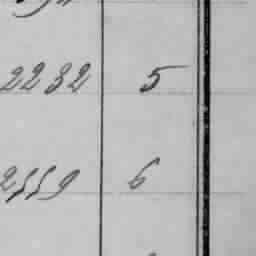 2232 5
2559 6